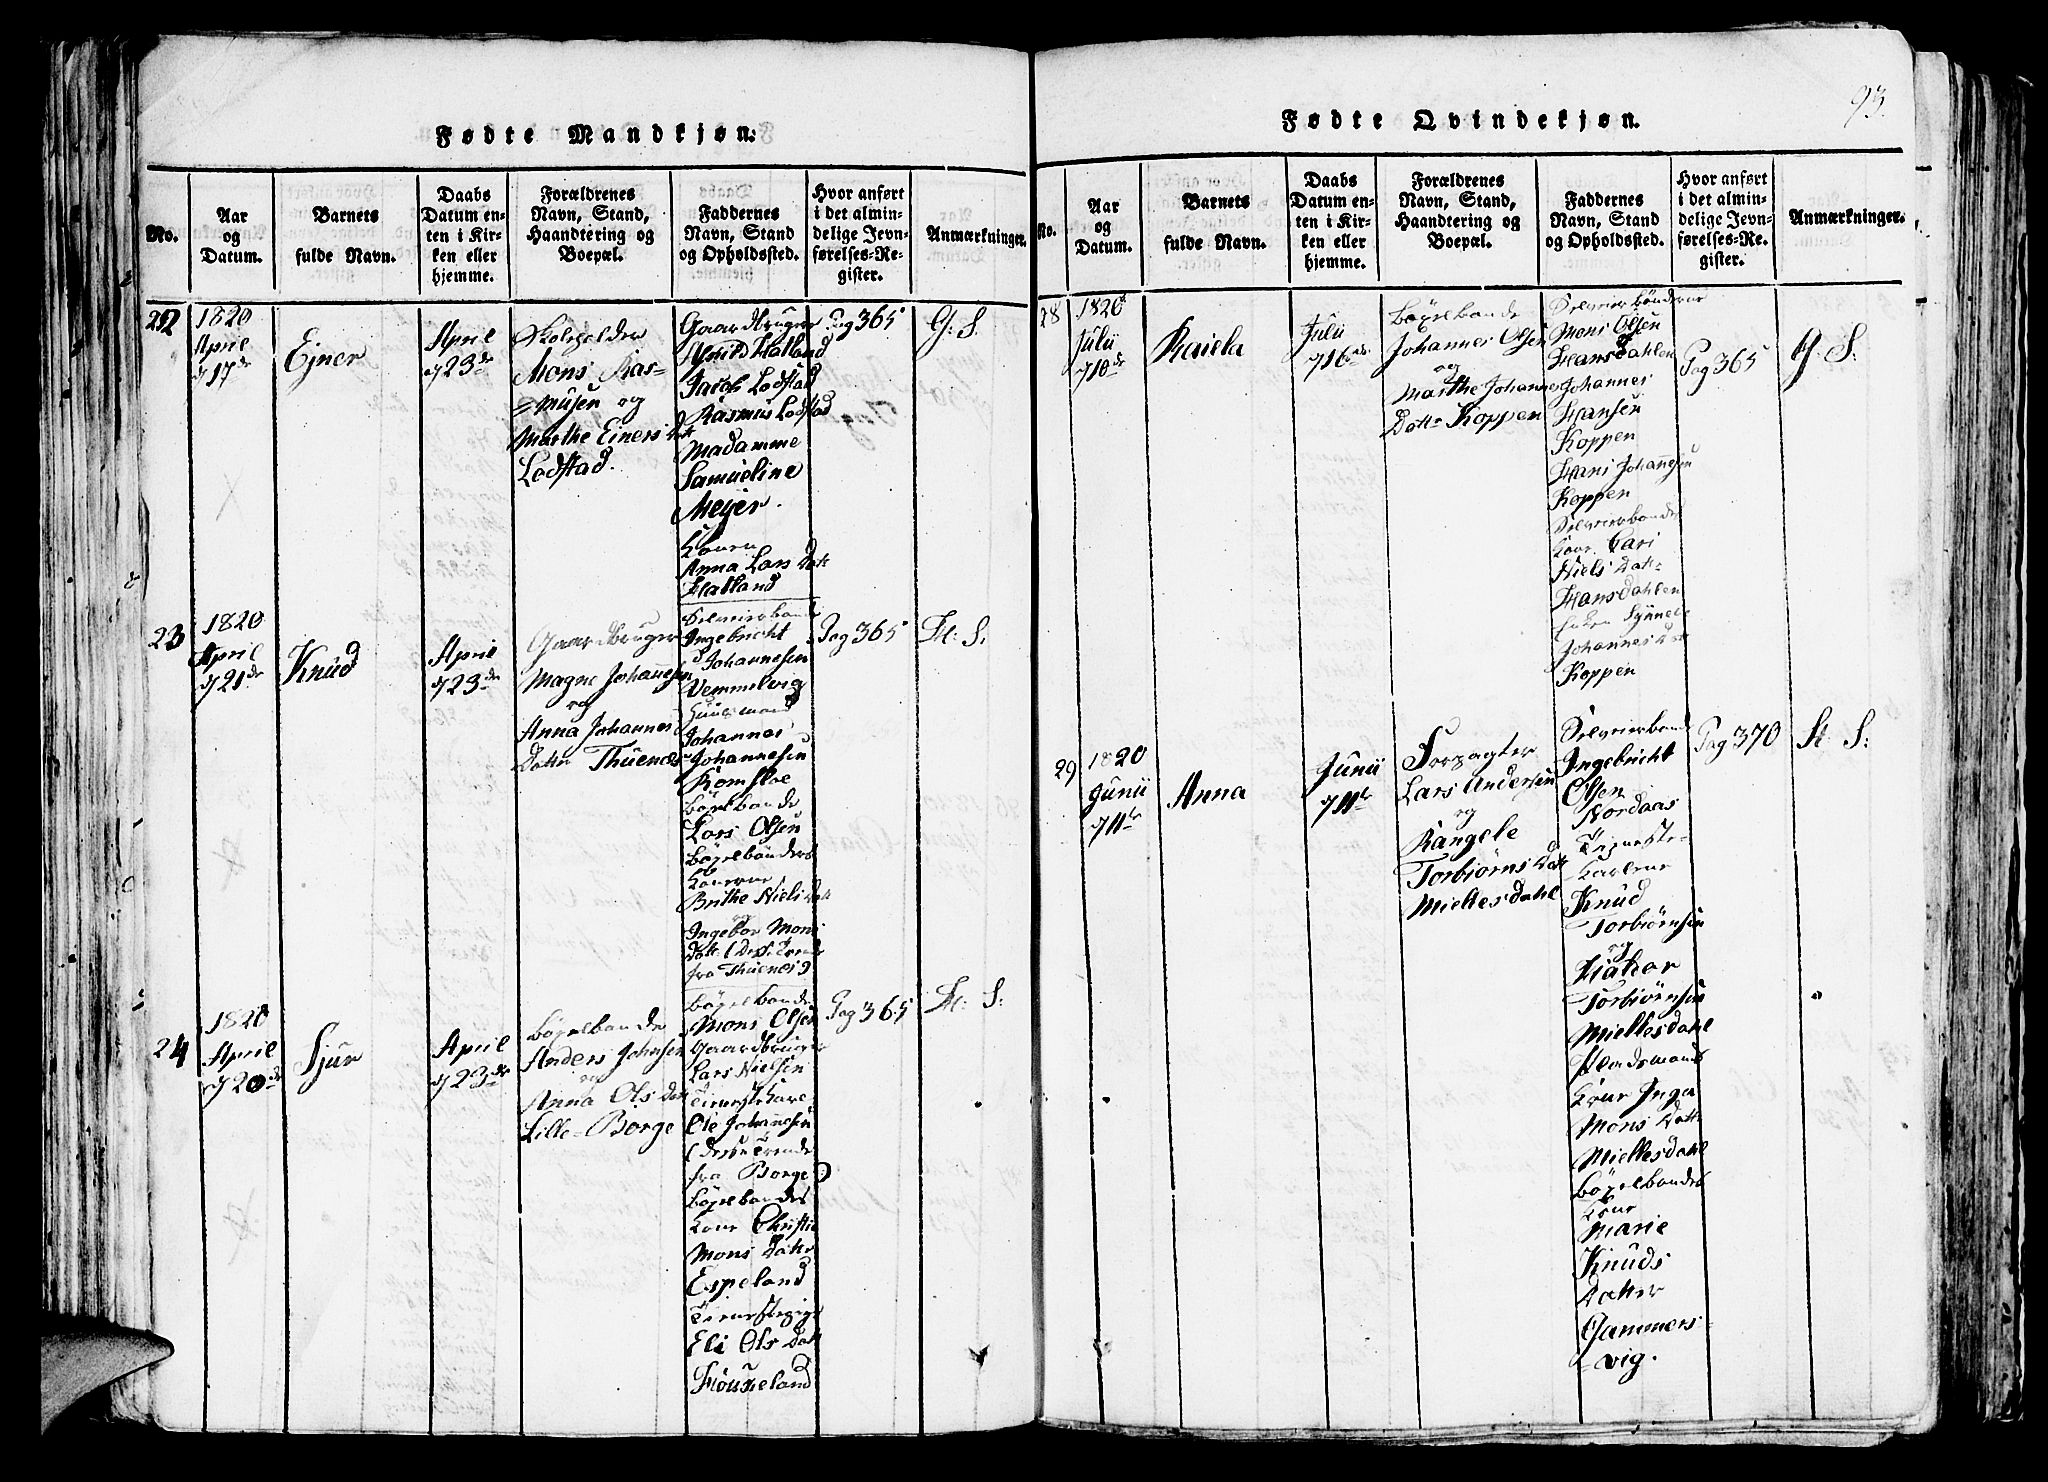 93.
Fødte Mandkjøn:
No.
Aar
og
Datum.
Barnets
fulde Navn.
Daabs
Datum en-
ten i Kir-
ken eller
hjemme.
Forældrenes
Navn, Stand,
Haandtering og
Boepæl.
Faddernes
Navn, Stand
og Opholdssted.
Hvor anført
i det almin-
delige Jevn-
førelses-Re-
gister.
Anmærkninger.
22
1820
April
d 17de
Ejner
April
d 23de
Skoleholder
Mons Ras-
=musen og
Marthe Einers Datt
Lodstad.
Gaardbruger
Arnild Hatland
Jacob Lodstad
Rasmus Lodstad
Madamme
Samueline
Meyer.
Konen
Anna Lars Datt
Hatland
Pag 365
G: S.
23
1820
April
d 21de
Knud
April
d 23de
Gaardbruger
Magne Johannesen
og
Anna Johannes
Datter Thuenes
Selveierbonde
Ingebricht
Johannesen
Vemmelvig
Huusmand
Johannes
Johannesen
Romsloe
Bøxelbonde
Lars Olsen
Bøxelbønders
Konerne
Brithe Niels Datt
og
Ingebor Mons
Datt: (Disse Trende
fra Thuenes)
Pag 365
St: S.
24
1820
April
d 20de
Sjur
April
d 23de
Bøxelbonde
Anders Johnsen
og
Anna Ols Datt
Lille-Borge
Bøxelbonde
Mons Olsen
Gaardbruger
Lars Nielsen
Tienestekarl
Ole Johannesen
(Disse Trende
fra Borge)
Bøxelbondes
Kone Christie
Mons Datter
Espeland
Tienestepige
Eli Ols Datt
Houseland
Pag 365
St: S:
Fødte Qvindekjøn.
No.
Aar
og
Datum.
Barnets
fulde Navn.
Daabs
Datum en-
ten i Kir-
ken eller
hjemme.
Forældrenes
Navn, Stand,
Haandtering og
Boepæl.
Faddernes
Navn, Stand
og Opholdssted.
Hvor anført
i det almin-
delige Jevn-
førelses-Re-
gister.
Anmærkninger.
28
1820
Julii
d 10de
Raiela
Julii
d 16de
Bøxelbonde
Johannes Olsen
og
Marthe Johannes
Datter Koppen
Selveierbønderne
Mons Olsen
Hansdahlen
Johannes
Hansen
Koppen
Hans Johannesen
Koppen
Selveierbondes
Kone Kari
Niels Datr
Hansdahlen
Enken Synneve
Johannes Datt
Koppen
Pag 365
G: S:
29
1820
Junii
d 11te
Anna
Junii
d 11te
Forpagter
Lars Andersen
og
Rangele
Torbiørns Datt
Mieltesdahl
Selveierbonde
Ingebricht
Olsen
Nordaas
Tieneste-
Karlene
Knud
Torbiørnsen
og
Haldor
Torbiørnsen
Mieltesdahl
Kone Inga
Mons Datt
Mieltesdahl
Bøxelbondes
Kone
Marie
Knuds
Datter
Gammers-
=vig.
Pag 370
St: S: